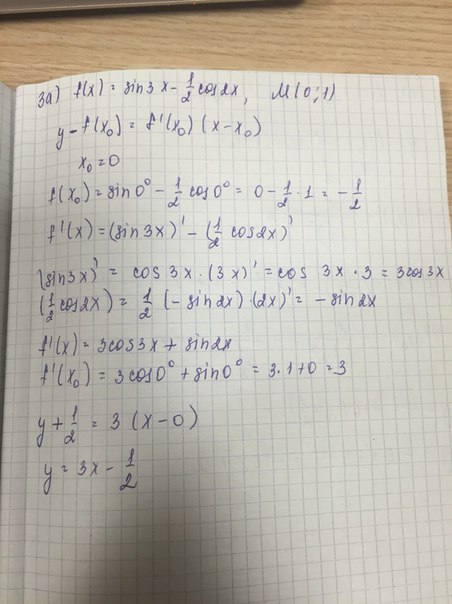 3а) f(x) = sin3x - 1/2 cos2x, M(0;1)
y - f(x₀) = f'(x₀) (x - x₀)
x₀ = 0
f(x₀) = sin0° - 1/2 cos0° = 0 - 1/2 · 1 = - 1/2
f'(x) = (sin3x)' - (1/2 cos2x)'
(sin3x)' = cos3x · (3x)' = cos 3x · 3 = 3cos3x
(1/2 cos2x) = 1/2 (-sin2x) · (2x)' = -sin2x
f'(x) = 3cos3x + sin2x
f'(x₀) = 3cos0° + sin0° = 3·1+0 = 3
y + 1/2 = 3 (x - 0)
y = 3x - 1/2